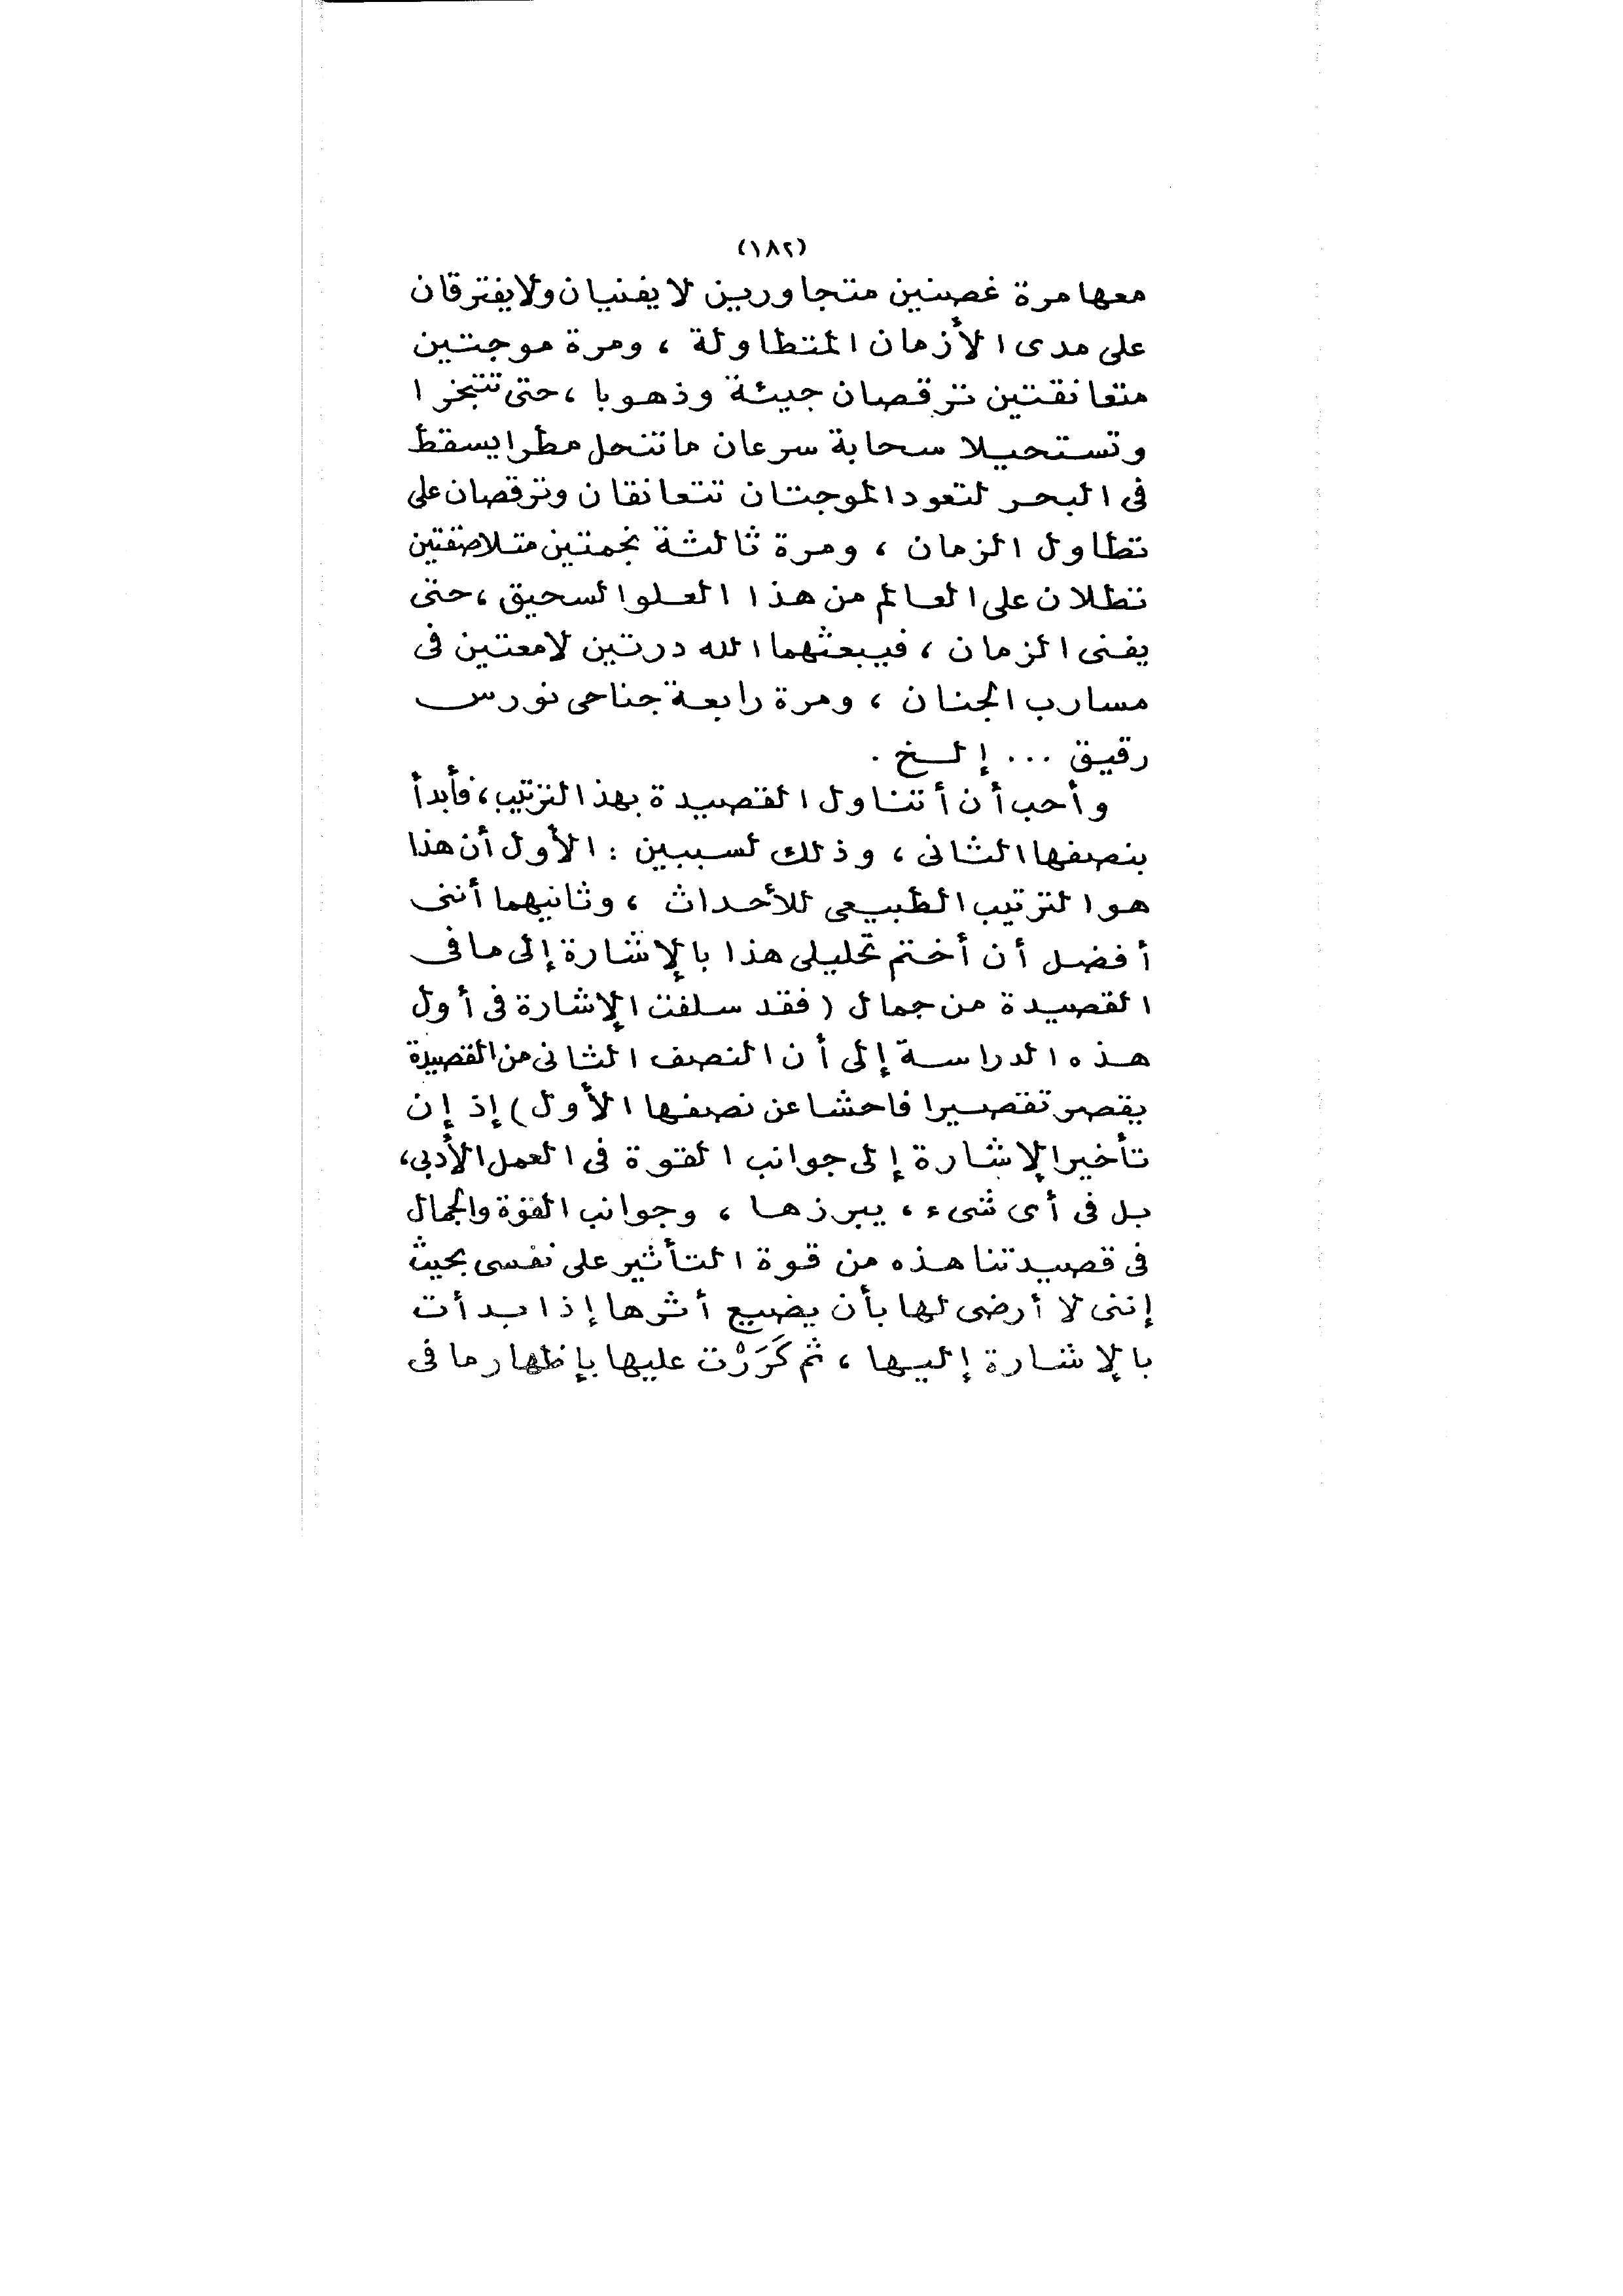 (١٨٢)
معها مرة غصنين متجاورين لا يفنيان ولا يفترقان
على مدى الأزمان المتطاولة ، ومرة موجتين
متعانقتين ترقصان جيئة وذهوبا ، حتى تتبخرا
وتستحيلا سحابة سرعان ما تنحل مطرا يسقط
فى البحر لتعود الموجتان تتعانقان وترقصان على
تطاول الزمان ، ومرة ثالثة نجمتين متلاصقتين
تطلان على العالم من هذا العلو السحيق ، حتى
يفنى الزمان ، فيبعثهما الله درتين لامعتين فى
مسارب الجنان ، ومرة رابعة جناحى نورس
رقيق ... إلخ .
وأحب أن أتناول القصيدة بهذا الترتيب ، فأبدأ
بنصفها الثانى ، وذلك لسببين : الأول أن هذا
هو الترتيب الطبيعى للأحداث ، وثانيهما أننى
أفضل أن أختم تحليلى هذا بالإشارة إلى ما فى
القصيدة من جمال ( فقد سلفت الإشارة فى أول
هذه الدراسة إلى أن النصف الثانى من القصيدة
يقصر تقصيرا فاحشا عن نصفها الأول ) إذ إن
تأخير الإشارة إلى جوانب القوة فى العمل الأدبى ،
بل فى أى شىء ، يبرزها ، وجوانب القوة والجمال
فى قصيدتنا هذه من قوة التأثير على نفسى بحيث
إننى لا أرضى لها بأن يضيع أثرها إذا بدأت
بالإشارة إليها ، ثم كَرَرْت عليها بإظهار ما فى